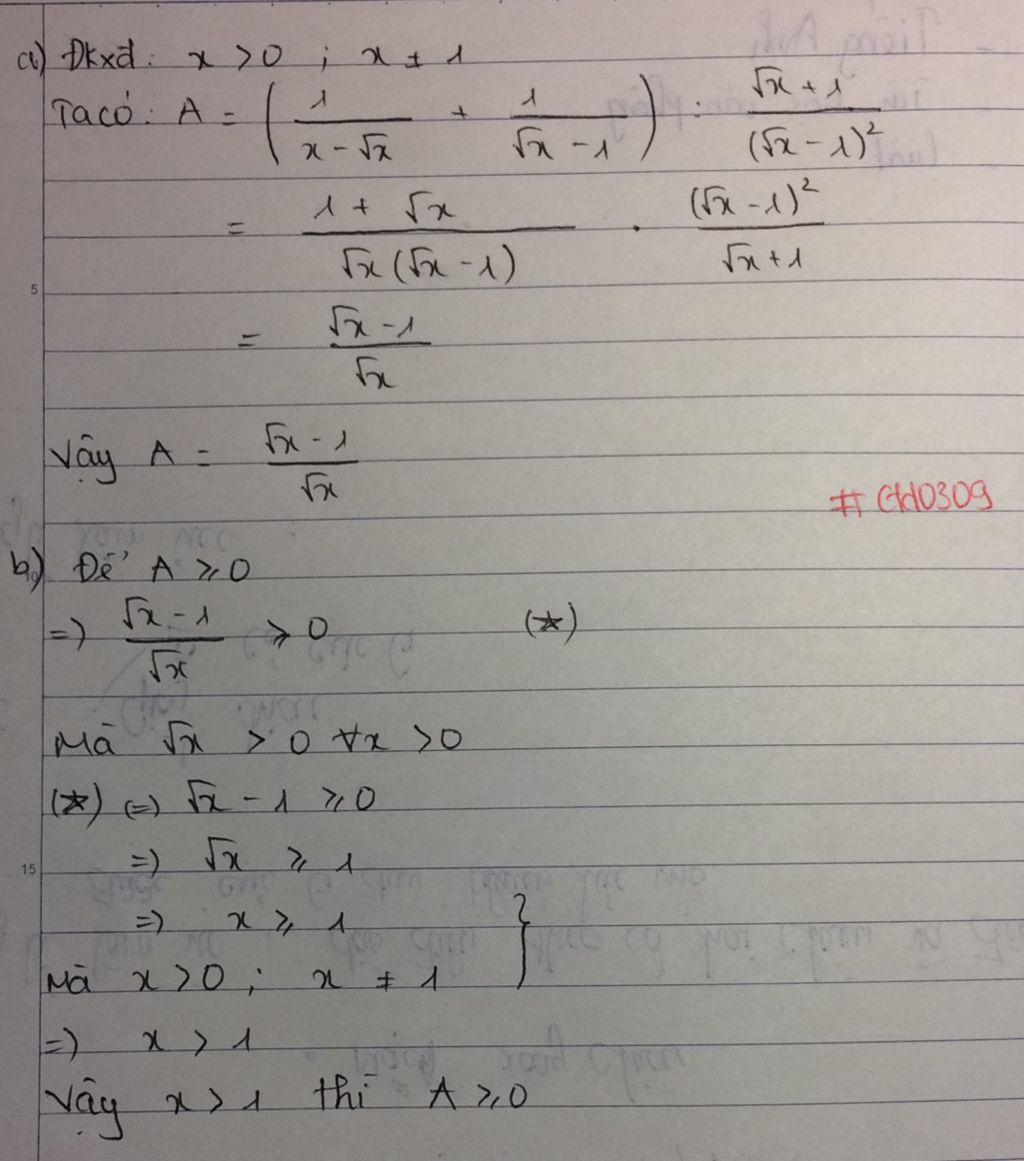 a) Đkxđ: x > 0 ; x ≠ 1
Ta có: A = ( 1/(x - √x) + 1/(√x - 1) ) : (√x + 1)/(√x - 1)²
= (1 + √x)/(√x(√x - 1)) . (√x - 1)²/(√x + 1)
= (√x - 1)/√x
Vậy A = (√x - 1)/√x
b) Để A ⩾ 0
=) (√x - 1)/√x ⩾ 0 (*)
Mà √x > 0 ∀x > 0
(*) (=) √x - 1 ⩾ 0
=) √x ⩾ 1
=) x ⩾ 1 }
Mà x > 0 ; x ≠ 1
=) x > 1
Vậy x > 1 thì A ⩾ 0
5
15